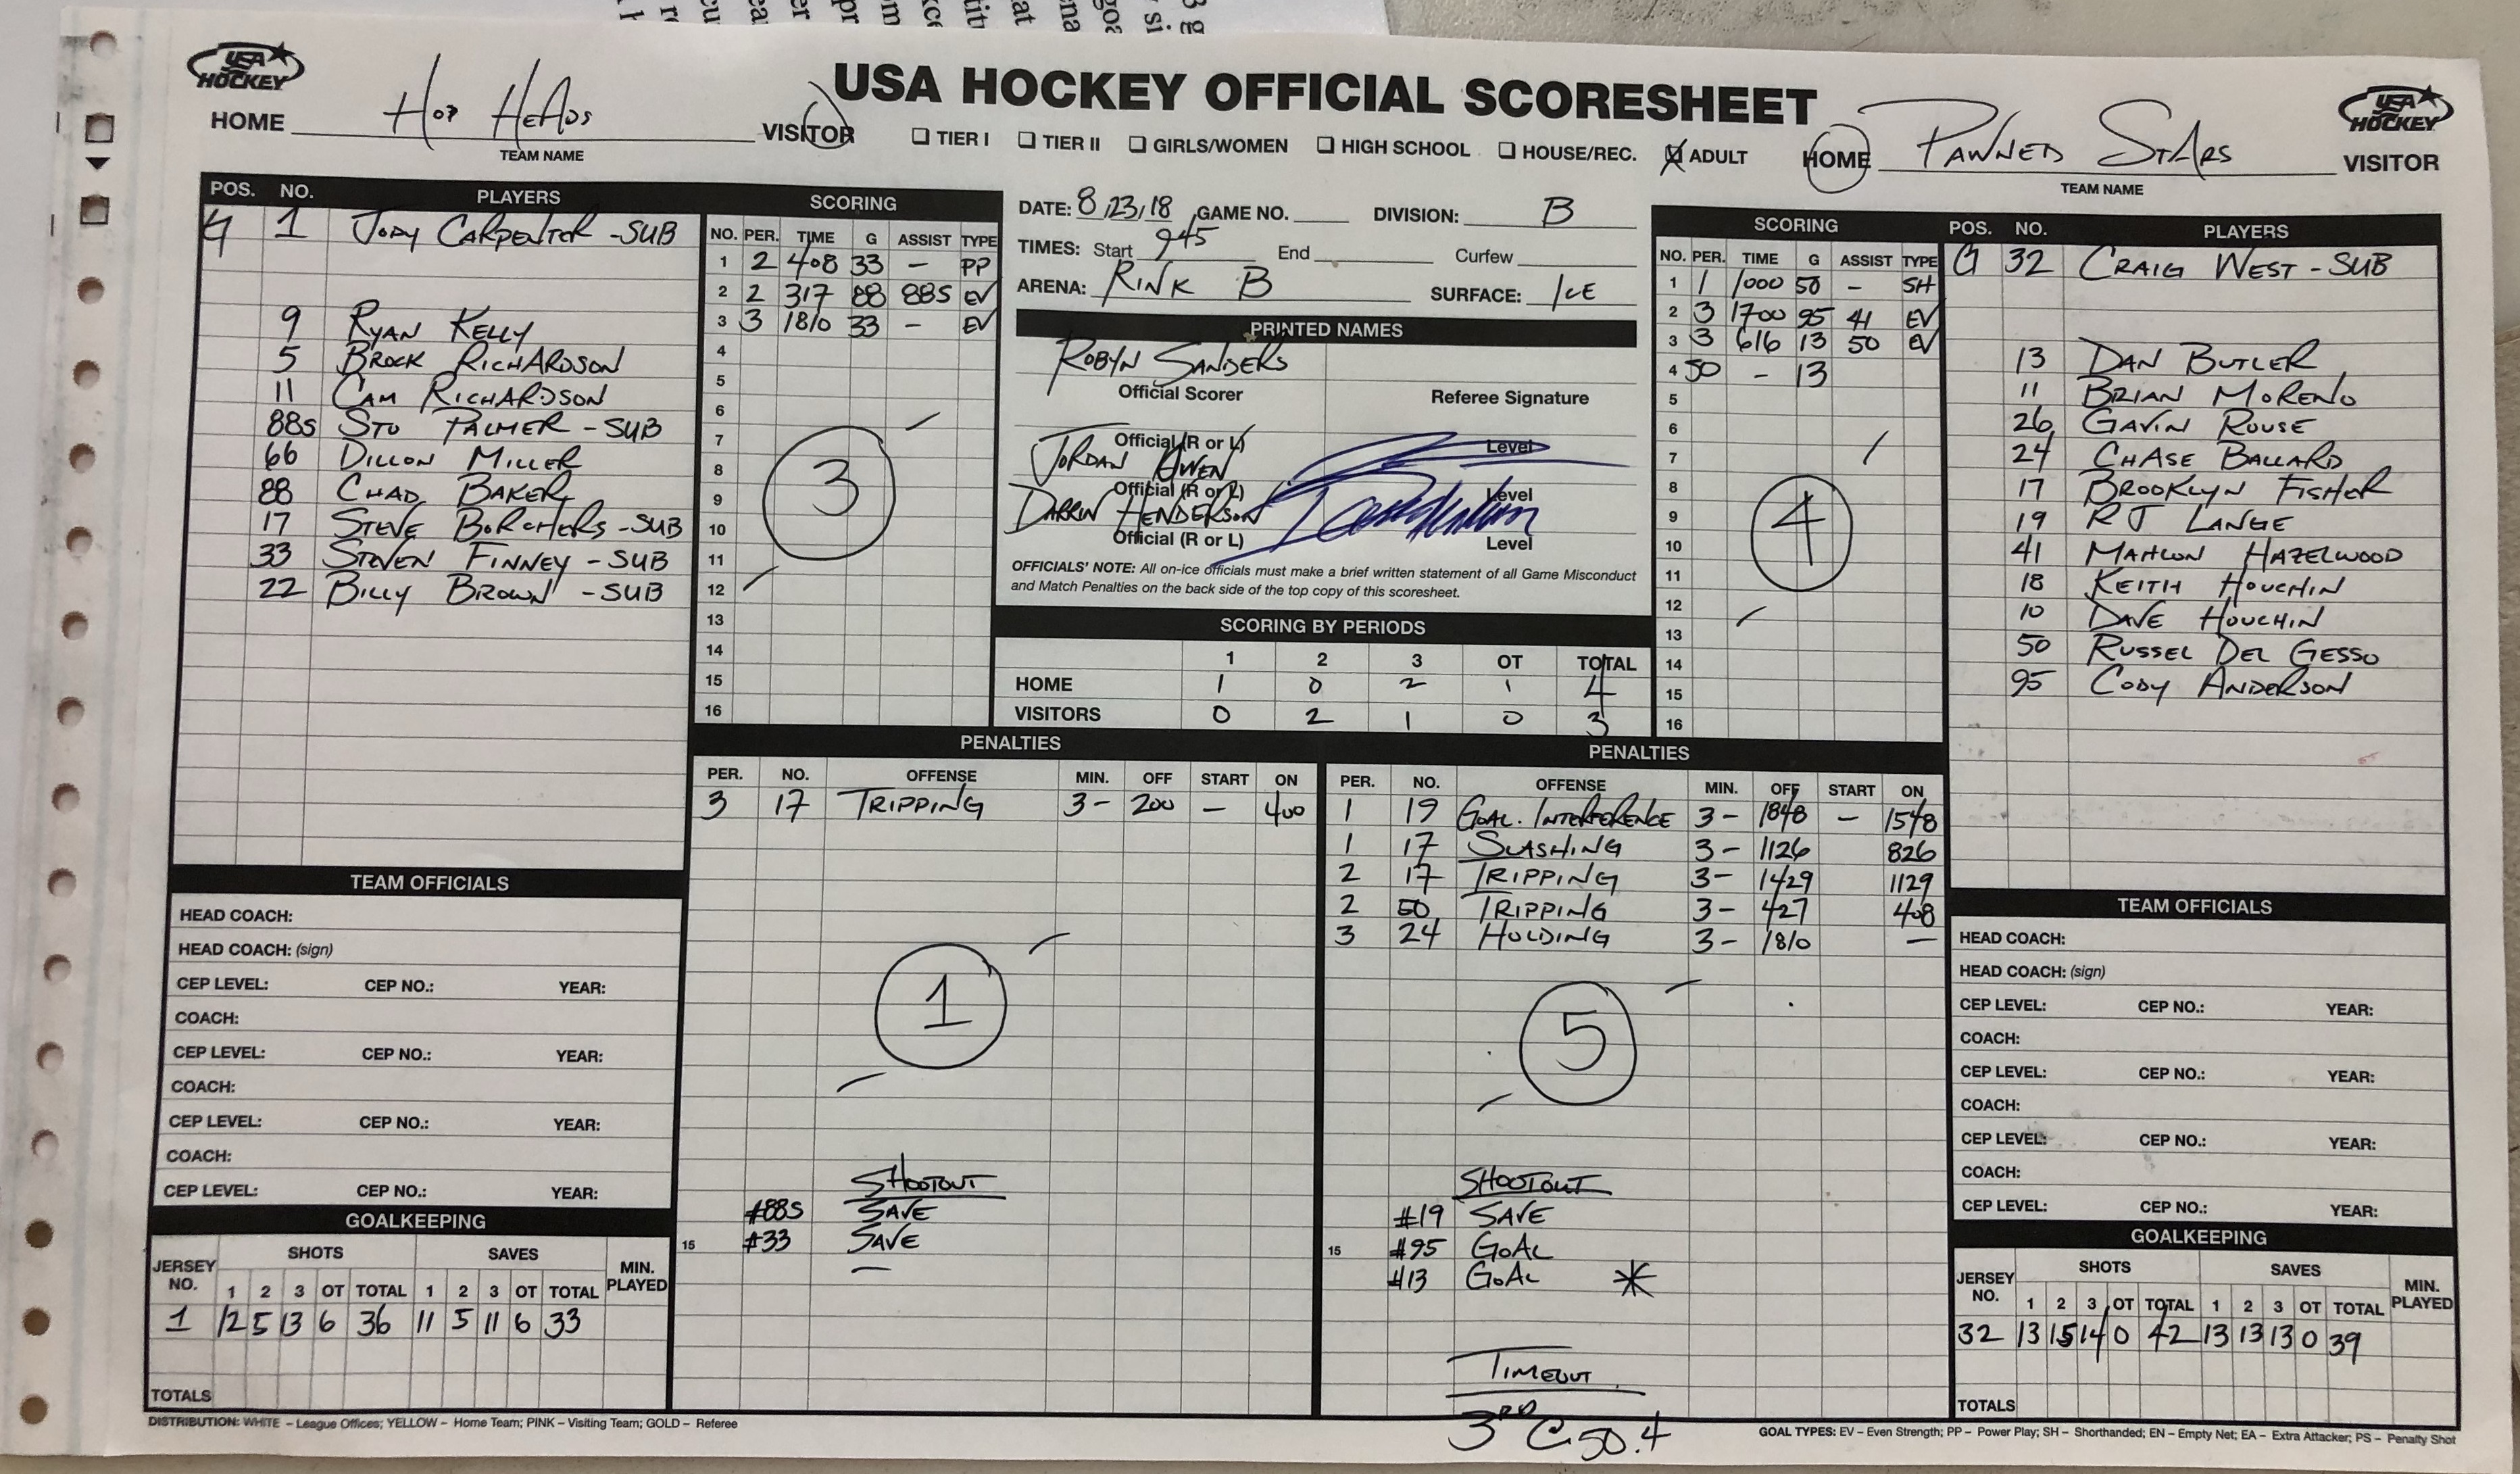 USA HOCKEY OFFICIAL SCORESHEET
USA HOCKEY
USA HOCKEY
HOME Hop Heads VISITOR
TEAM NAME
TIER I TIER II GIRLS/WOMEN HIGH SCHOOL HOUSE/REC. ADULT
HOME Pawned Stars VISITOR
TEAM NAME
POS. NO. PLAYERS
G 1 Jody Carpenter - SUB
9 Ryan Kelly
5 Brock Richardson
11 Cam Richardson
88s Stu Palmer - SUB
66 Dillon Miller
88 Chad Baker
17 Steve Borchers - SUB
33 Steven Finney - SUB
22 Billy Brown - SUB
SCORING
NO. PER. TIME G ASSIST TYPE
1 2 408 33 - PP
2 2 317 88 88S EV
3 3 1810 33 - EV
4
5
6
7
8
9
10
11
12
13
14
15
16
3
DATE: 8/23/18 GAME NO. DIVISION: B
TIMES: Start 945 End Curfew
ARENA: Rink B SURFACE: Ice
PRINTED NAMES
Robyn Sanders
Official Scorer Referee Signature
Official (R or L) Level
Jordan Owen
Official (R or L) Level
Darrin Henderson
Official (R or L) Level
OFFICIALS' NOTE: All on-ice officials must make a brief written statement of all Game Misconduct
and Match Penalties on the back side of the top copy of this scoresheet.
SCORING BY PERIODS
1 2 3 OT TOTAL
HOME 1 0 2 1 4
VISITORS 0 2 1 0 3
SCORING
NO. PER. TIME G ASSIST TYPE
1 1 1000 50 - SH
2 3 1700 95 41 EV
3 3 616 13 50 EV
4 SO - 13
5
6
7
8
9
10
11
12
13
14
15
16
4
POS. NO. PLAYERS
G 32 Craig West - SUB
13 Dan Butler
11 Brian Moreno
26 Gavin Rouse
24 Chase Ballard
17 Brooklyn Fisher
19 RJ Lange
41 Mahlon Hazelwood
18 Keith Houchin
10 Dave Houchin
50 Russel Del Gesso
95 Cody Anderson
PENALTIES
PER. NO. OFFENSE MIN. OFF START ON
3 17 Tripping 3- 200 - 400
1
Shootout
#88S Save
15 #33 Save
-
PENALTIES
PER. NO. OFFENSE MIN. OFF START ON
1 19 Goal. Interference 3- 1848 - 1548
1 17 Slashing 3- 1126 826
2 17 Tripping 3- 1429 1129
2 50 Tripping 3- 427 408
3 24 Holding 3- 1810 -
5
Shootout
#19 Save
15 #95 Goal
#13 Goal *
Timeout
3RD @ 50.4
TEAM OFFICIALS
HEAD COACH:
HEAD COACH: (sign)
CEP LEVEL: CEP NO.: YEAR:
COACH:
CEP LEVEL: CEP NO.: YEAR:
COACH:
CEP LEVEL: CEP NO.: YEAR:
COACH:
CEP LEVEL: CEP NO.: YEAR:
GOALKEEPING
JERSEY NO. SHOTS SAVES MIN. PLAYED
1 2 3 OT TOTAL 1 2 3 OT TOTAL
1 12 5 13 6 36 11 5 11 6 33
TOTALS
TEAM OFFICIALS
HEAD COACH:
HEAD COACH: (sign)
CEP LEVEL: CEP NO.: YEAR:
COACH:
CEP LEVEL: CEP NO.: YEAR:
COACH:
CEP LEVEL: CEP NO.: YEAR:
COACH:
CEP LEVEL: CEP NO.: YEAR:
GOALKEEPING
JERSEY NO. SHOTS SAVES MIN. PLAYED
1 2 3 OT TOTAL 1 2 3 OT TOTAL
32 13 15 14 0 42 13 13 13 0 39
TOTALS
DISTRIBUTION: WHITE – League Offices; YELLOW – Home Team; PINK – Visiting Team; GOLD – Referee
GOAL TYPES: EV – Even Strength; PP – Power Play; SH – Shorthanded; EN – Empty Net; EA – Extra Attacker; PS – Penalty Shot